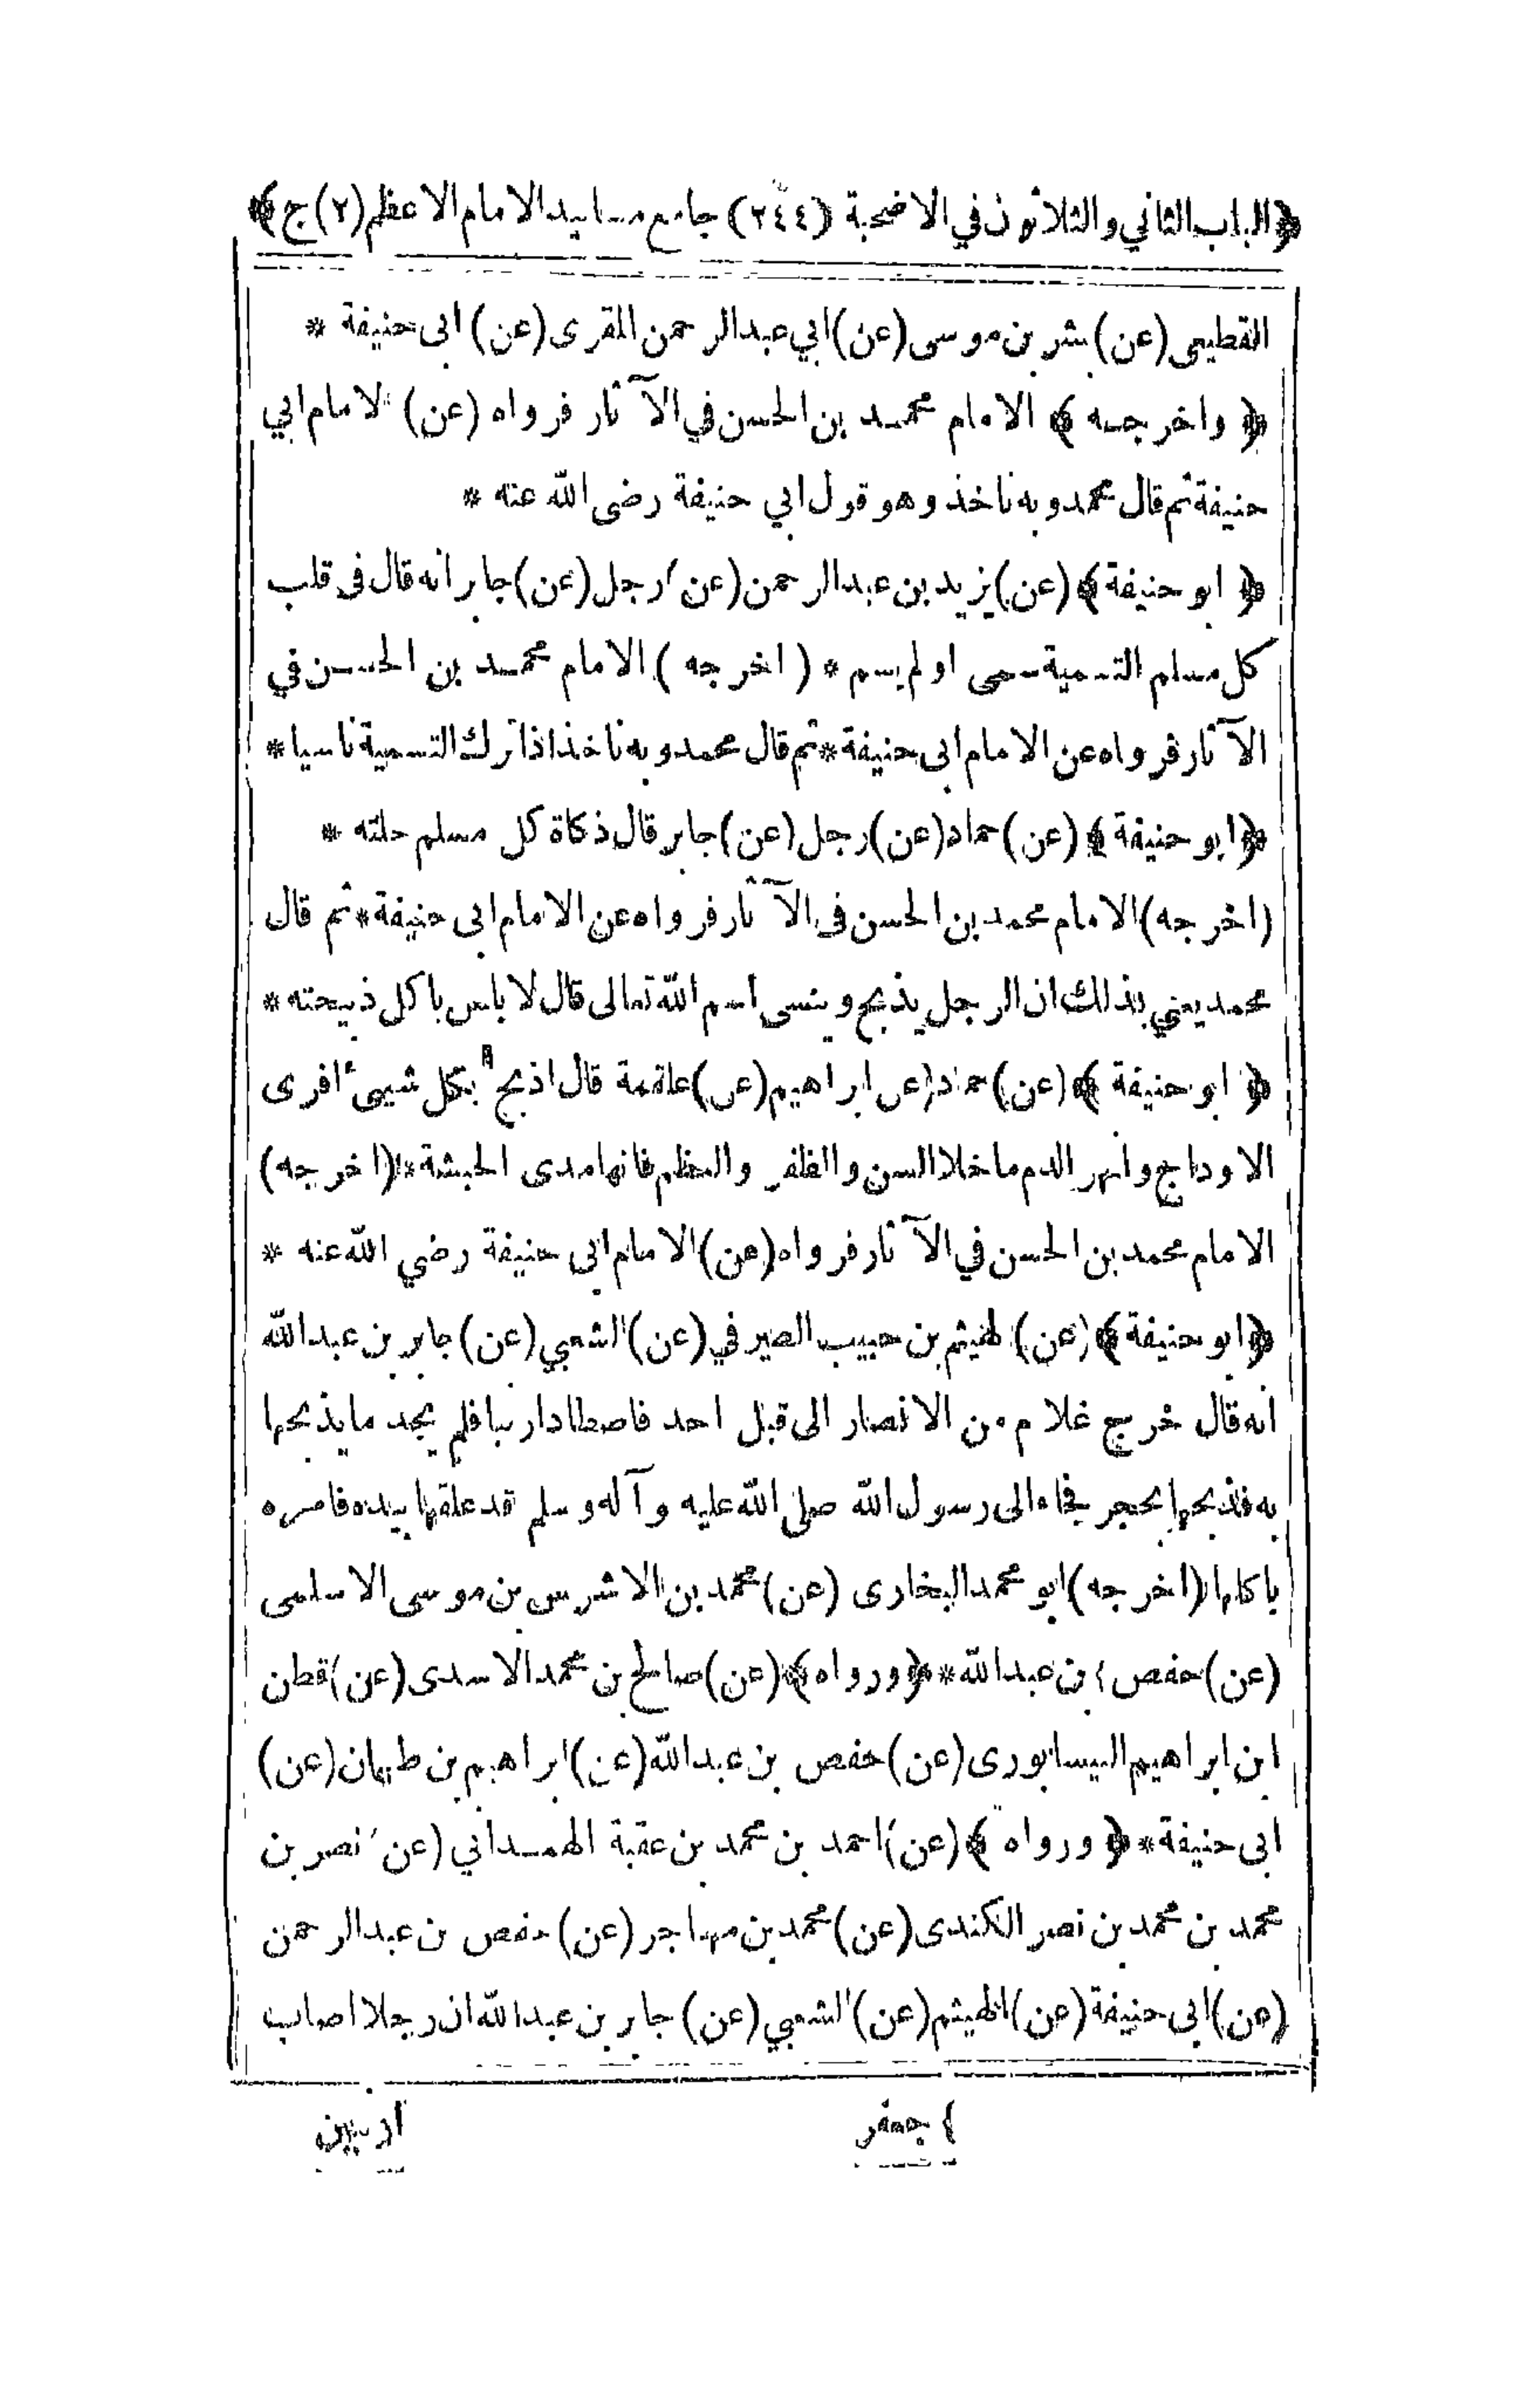 ﴿الباب الثاني والثلاثون في الاضحية (٢٤٤) جامع مسانيد الامام الاعظم (٢) ج﴾
القطيعى (عن) بشر بن موسى (عن) ابي عبدالرحمن المقرى (عن) ابى حنيفة *
﴿ واخرجه ﴾ الامام محمد بن الحسن في الآثار فرواه (عن) الامام ابي
حنيفة ثم قال محمد وبه ناخذ وهو قول ابي حنيفة رضى الله عنه *
﴿ ابو حنيفة ﴾ (عن) يزيد بن عبدالرحمن (عن) رجل (عن) جابر انه قال فى قلب
كل مسلم التسمية سمى او لم يسم * ( اخرجه ) الامام محمد بن الحسن في
الآثار فرواه عن الامام ابى حنيفة * ثم قال محمد وبه ناخذ اذا ترك التسمية ناسيا *
﴿ ابو حنيفة ﴾ (عن) حماد (عن) رجل (عن) جابر قال ذكاة كل مسلم حلته *
(اخرجه) الامام محمد بن الحسن فى الآثار فرواه عن الامام ابى حنيفة * ثم قال
محمد يعني بذلك ان الرجل يذبح وينسى اسم الله تعالى قال لا باس باكل ذبيحته *
﴿ ابو حنيفة ﴾ (عن) حماد (عن) ابراهيم (عن) علقمة قال اذبح بكل شيىء افرى
الاوداج وانهر الدم ما خلا السن والظفر والعظم فانها مدى الحبشة * (اخرجه)
الامام محمد بن الحسن في الآثار فرواه (عن) الامام ابى حنيفة رضي الله عنه *
﴿ ابو حنيفة ﴾ (عن) الهيثم بن حبيب الصيرفي (عن) الشعبي (عن) جابر بن عبدالله
انه قال خرج غلام من الانصار الى قبل احد فاصطاد ارنبا فلم يجد ما يذبحها
به فذبحها بحجر فجاء الى رسول الله صلى الله عليه وآله وسلم قد علقها بيده فامره
باكلها (اخرجه) ابو محمد البخارى (عن) محمد بن الاشرس بن موسى الاسلمى
(عن) حفص بن عبدالله * ﴿ ورواه ﴾ (عن) صالح بن محمد الاسدى (عن) قطن
ابن ابراهيم النيسابورى (عن) حفص بن عبدالله (عن) ابراهيم بن طهمان (عن)
ابى حنيفة * ﴿ ورواه ﴾ (عن) احمد بن محمد بن عقبة الهمداني (عن) نصر بن
محمد بن محمد بن نصر الكندى (عن) محمد بن مهاجر (عن) حفص بن عبدالرحمن
(عن) ابى حنيفة (عن) الهيثم (عن) الشعبي (عن) جابر بن عبدالله ان رجلا اصاب
جعفر
ارنبين